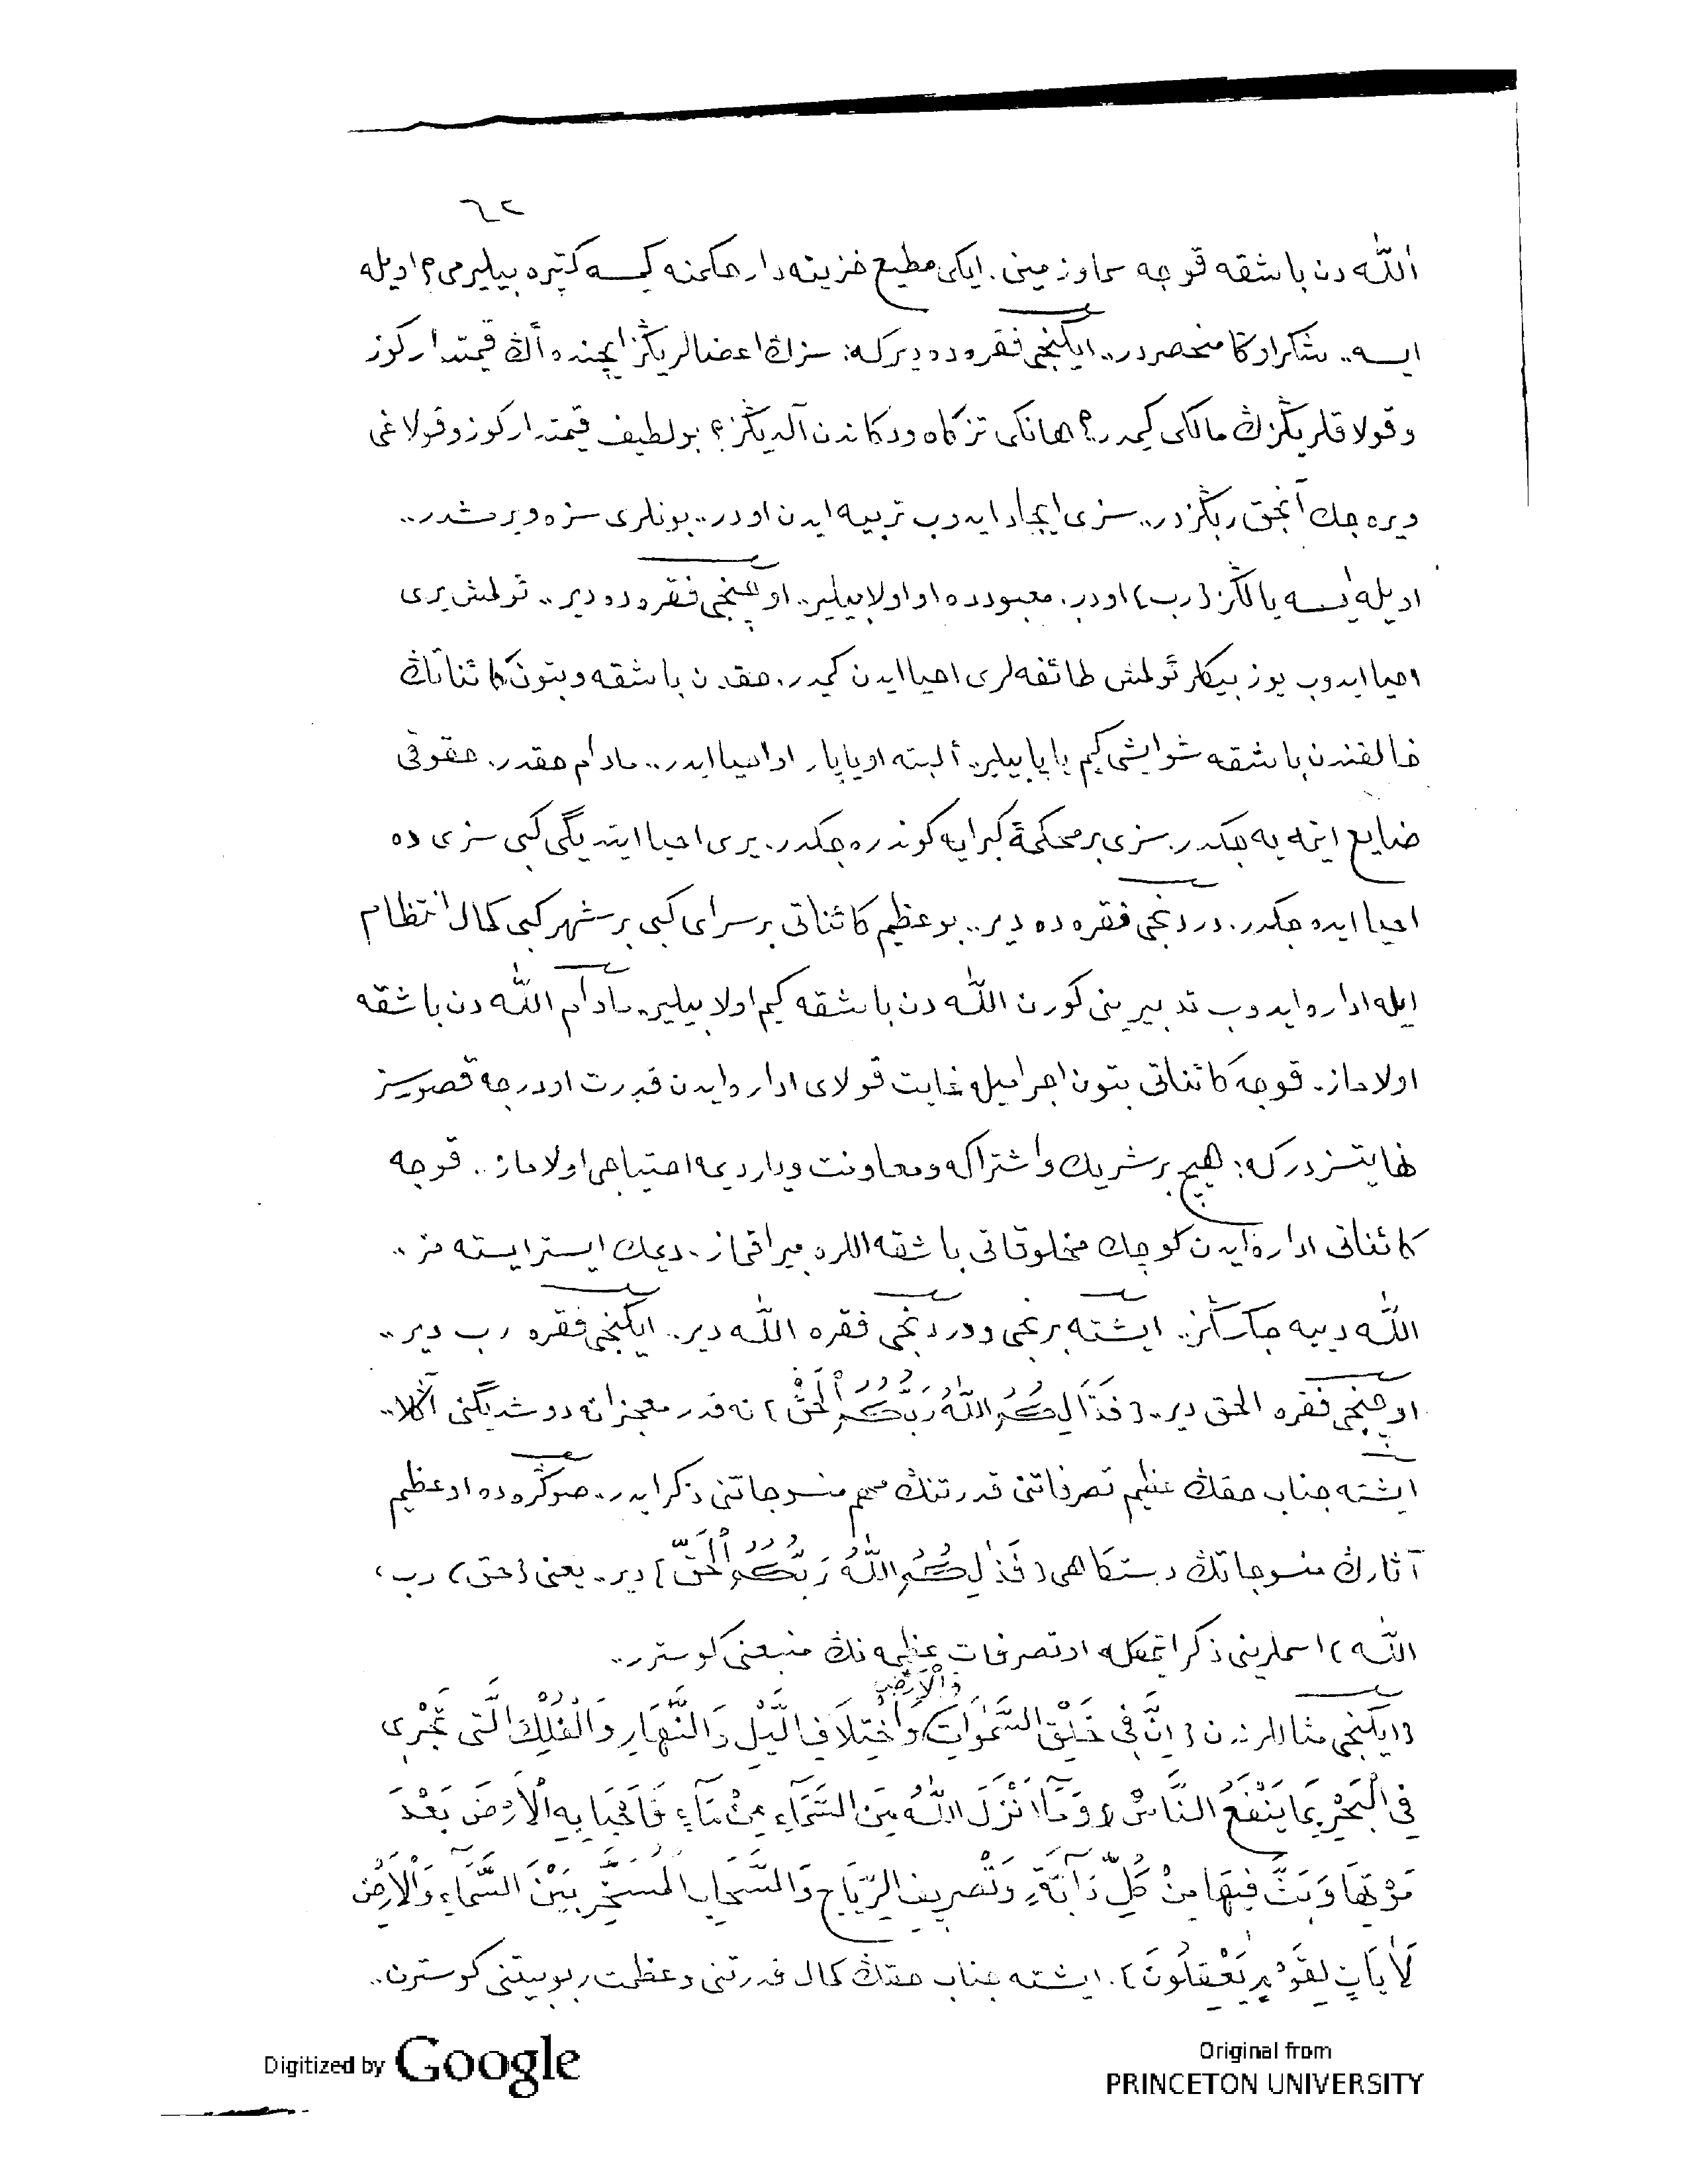 ٦٢
اللّٰه دن باشقه قوجه سما و زمینی. ایكی مطیع خزینه دار حكمنه كیمسه كتیره بیلیرمی؟ اویله
ایسه.. شكر اوڭا منحصردر.. ایكنجی فقره ده دیركه: سزڭ اعضالریڭز ایچنده أڭ قیمتدار كوز
و قولاقلریڭزڭ مالكی كیمدر؟ هانكی تزكاه و دكاندن آلدیڭز؟ بو لطیف قیمتدار كوز و قولاغی
ویره جك آنجق ربڭزدر.. سزی ایجاد ایدوب تربیه ایدن اودر.. بونلری سزه ویرمشدر..
اویله ایسه یالڭز {رب} اودر. معبودده او اولابیلیر.. اوچنجی فقره ده دیر.. ئولمش یری
احیا ایدوب یوز بیكلر ئولمش طائفه لری احیا ایدن كیمدر. حقدن باشقه و بتون كائناتڭ
خالقندن باشقه شو ایشی كیم یاپابیلیر. ألبته او یاپار او احیا ایدر.. مادام حقدر. حقوقی
ضایع ایتمه یه جكدر. سزی بر محكمۀ كبرایه كوندره جكدر. یری احیا ایتدیگی كبی سزی ده
احیا ایده جكدر. دردنجی فقره ده دیر.. بو عظیم كائناتی بر سرای كبی بر شهر كبی كمال انتظام
ایله اداره ایدوب تدبیرینی كورن اللّٰه دن باشقه كیم اولابیلیر. مادام اللّٰه دن باشقه
اولاماز. قوجه كائناتی بتون اجرامیله غایت قولای اداره ایدن قدرت او درجه قصورسز
نهایتسزدركه: هیچ بر شریك و اشتراكه و معاونت ویاردیمه احتیاجی اولاماز.. قوجه
كائناتی اداره ایدن كوچك مخلوقاتی باشقه اللره بیراقماز. دیمك ایستر ایسته مز..
اللّٰه دییه جكسڭز. ایشته برنجی و دردنجی فقره اللّٰه دیر. ایكنجی فقره رب دیر..
اوچنجی فقره الحق دیر.. {فَذٰلِكُمُ اللّٰهُ رَبُّكُمُ الْحَقُّ} نه قدر معجزانه دوشدیگنی آڭلا..
ایشته جناب حقڭ عظیم تصرفاتنی قدرتنڭ مهم منسوجاتنی ذكر ایدر. صوڭره ده او عظیم
آثارڭ منسوجاتڭ دستكاهی {فَذٰلِكُمُ اللّٰهُ رَبُّكُمُ الْحَقُّ} دیر. یعنی {حق} رب،
اللّٰه} اسملرینی ذكر ایتمكله او تصرفات عظیمه نڭ منبعنی كوسترر..
{ایكنجی مثاللرندن {إِنَّ فِی خَلْقِ السَّمٰوَاتِ وَالْاَرْضِ وَاخْتِلَافِ الَّیْلِ وَالنَّهَارِ وَالْفُلْكِ الَّتِی تَجْرِی
فِی الْبَحْرِ بِمَا یَنْفَعُ النَّاسَ وَمَا اَنْزَلَ اللّٰهُ مِنَ السَّمَاءِ مِنْ مَاءٍ فَاَحْیَا بِهِ الْاَرْضَ بَعْدَ
مَوْتِهَا وَبَثَّ فِیهَا مِنْ كُلِّ دَابَّةٍ وَتَصْرِیفِ الرِّیَاحِ وَالسَّحَابِ الْمُسَخَّرِ بَیْنَ السَّمَاءِ وَالْاَرْضِ
لَاٰیَاتٍ لِقَوْمٍ یَعْقِلُونَ}. ایشته جناب حقڭ كمال قدرتنی و عظمت ربوبیتنی كوسترن..
Digitized by Google
Original from
PRINCETON UNIVERSITY